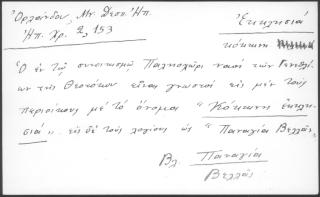 Ὀρλάνδου, Μν. Δεσπ. Ἠπ.
Ἠπ. Χρ. 2, 153
Ἐκκλησιά
κόκκινη
Ὁ ἐν τῷ συνοικισμῷ Παληοχώρι ναός τῶν Γενεθλί
ων τῆς Θεοτόκου εἶναι γνωστός εἰς μέν τούς
περιοίκους μέ τό ὄνομα "Κόκκινη ἐκκλη-
σιά", εἰς δέ τούς λογίους ὡς "Παναγία Βελλᾶς"
Βλ. Παναγία
Βελλᾶς